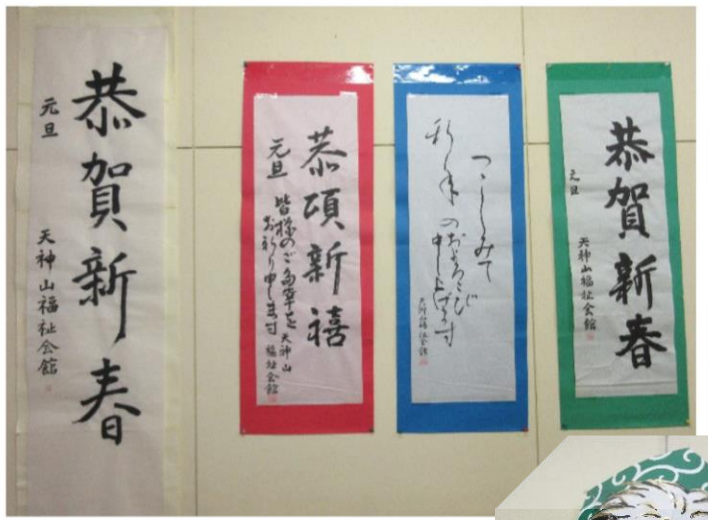 恭賀新春
元旦
天神山福祉会館
恭頌新禧
元旦
皆様のご多幸を
お祈り申します
天神山
福祉会館
つつしみて
新年のおよろこび
申し上げます
天神山福祉会館
恭賀新春
元旦
天神山福祉会館